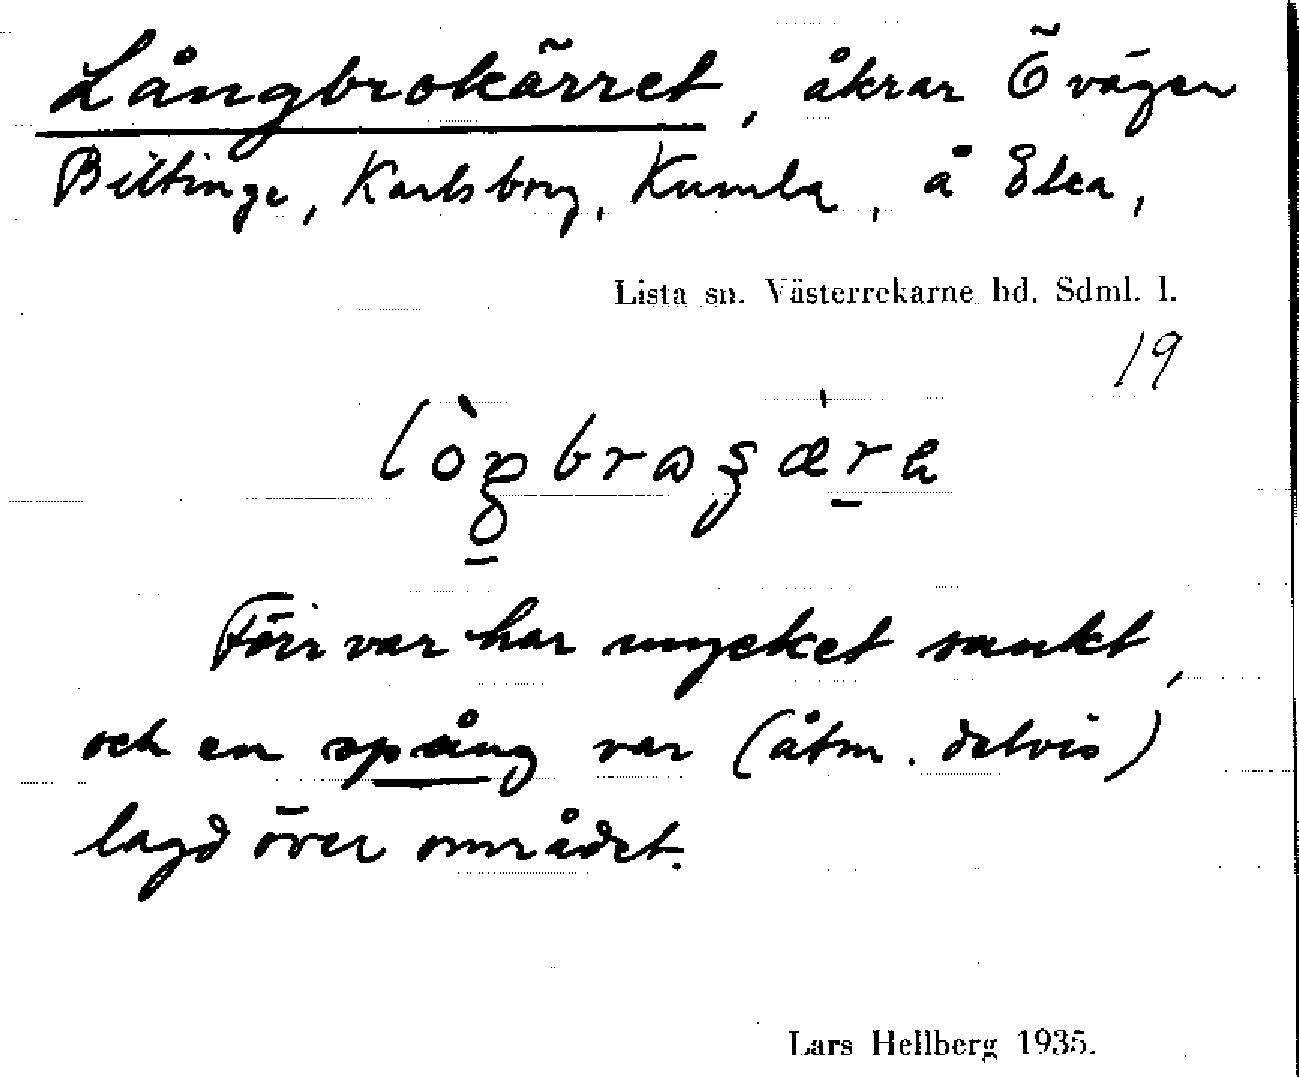 Långbrokärret, åkrar Ö vägen
Biltinge, Karlsborg, Kumla, å Elea,
Lista sn. Västerrekarne hd. Sdml. l.
19
Förr var här mycket sankt,
och en spång var (åtm. delvis)
lagd över området.
Lars Hellberg 1935.